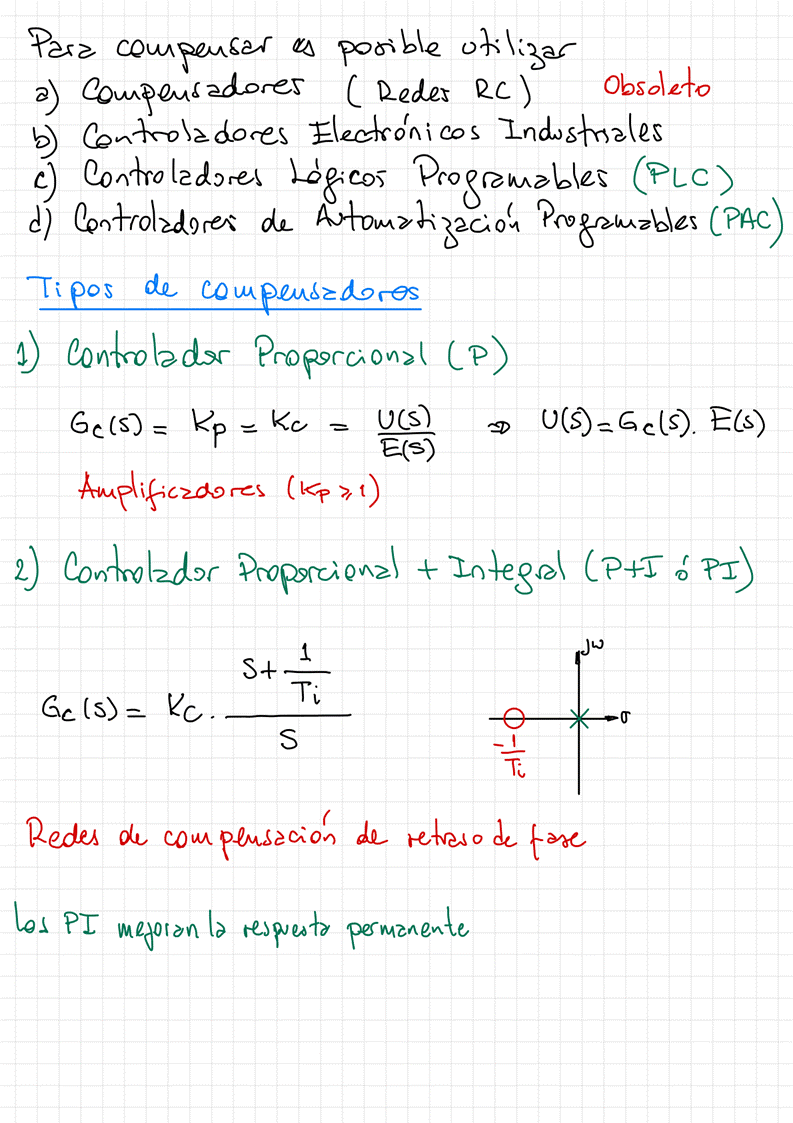 Para compensar es posible utilizar
a) Compensadores (Redes RC) Obsoleto
b) Controladores Electrónicos Industriales
c) Controladores Lógicos Programables (PLC)
d) Controladores de Automatización Programables (PAC)
Tipos de compensadores
1) Controlador Proporcional (P)
Gc(s) = Kp = Kc = U(s)/E(s) ⇒ U(s) = Gc(s). E(s)
Amplificadores (Kp ⩾ 1)
2) Controlador Proporcional + Integral (P+I ó PI)
Gc(s) = Kc . (S + 1/Ti)/S
jω
σ
-1/Ti
Redes de compensación de retraso de fase
Los PI mejoran la respuesta permanente